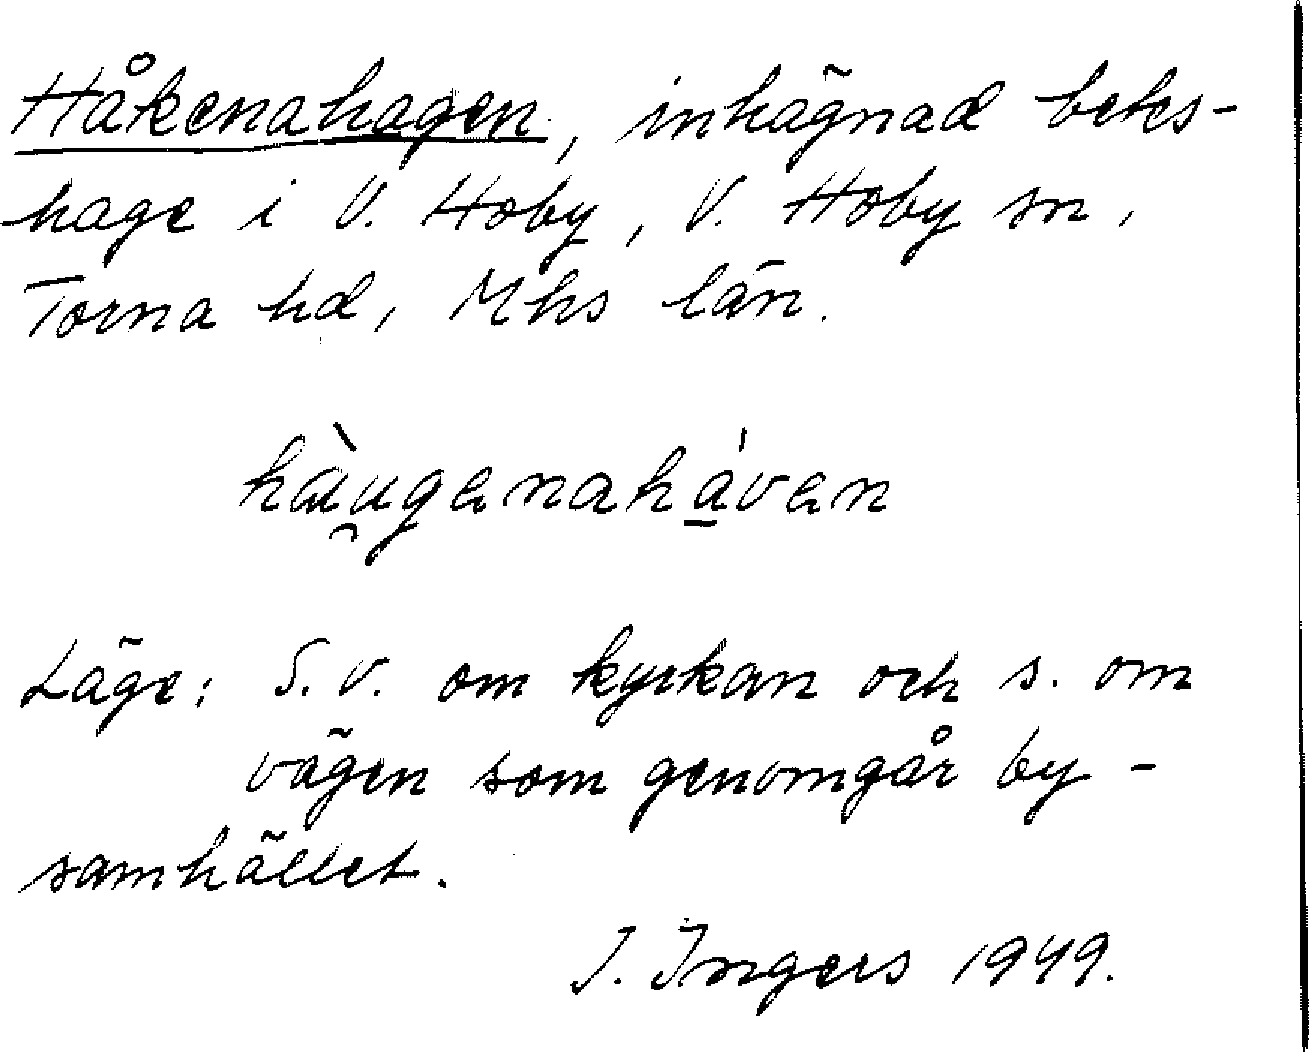 Håkenahagen, inhägnad betes-
hage i V. Hoby, V. Hoby sn,
Torna hd, Mhs län.
hàu̯ganahá̱van
Läge: S.V. om kyrkan och s. om
vägen som genomgår by-
samhället.
I. Ingers 1949.